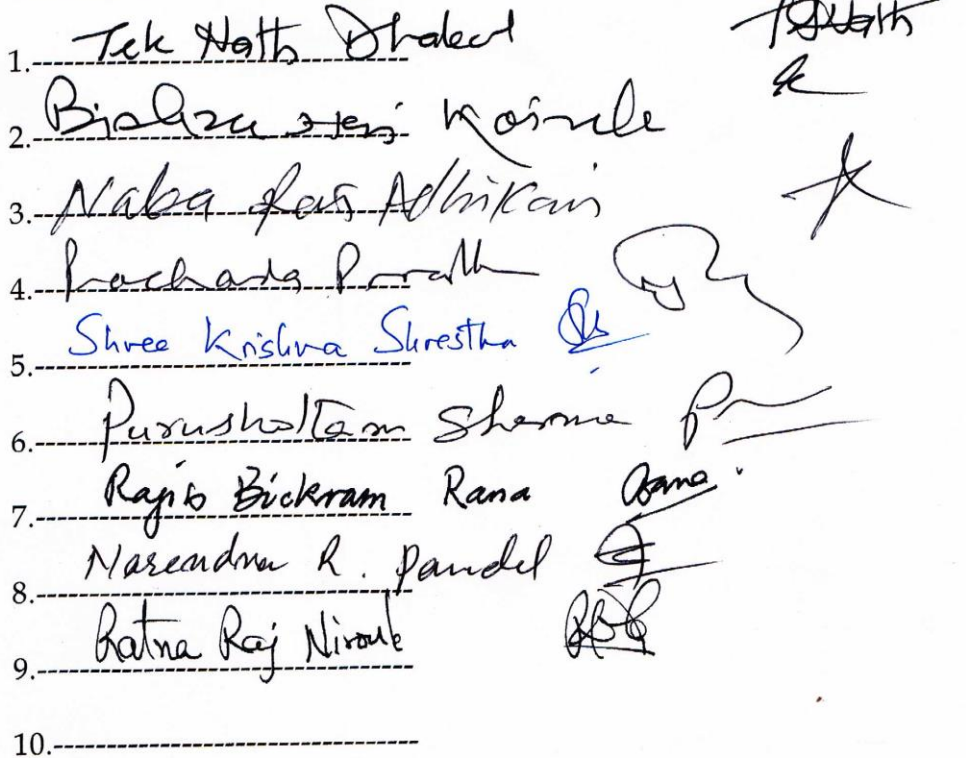 1. Tek Nath Dhakal TNath
2. Bishnu Hari Koirala
3. Naba Raj Adhikari
4. Prachanda Pradhan
5. Shree Krishna Shrestha
6. Purushottam Sharma
7. Rajib Bickram Rana Rana
8. Narendra R. Paudel
9. Ratna Raj Niroula
10.